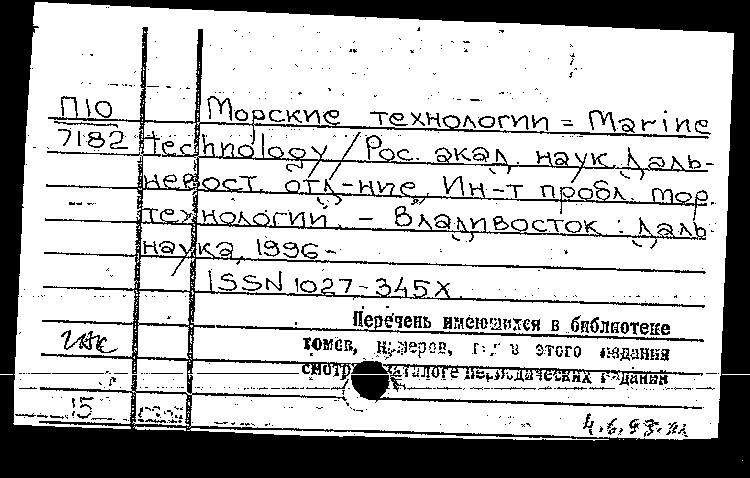 П10 Морские технологии = Marine
7182 technology / Рос. акад. наук. Даль-
невост. отд-ние, Ин-т пробл. мор.
технологий. - Владивосток : Даль
наука, 1996-
ISSN 1027-345X
Перечень имеющихся в библиотеке
томов, номеров, год в этого издания
смотри каталоге периодических изданий
15